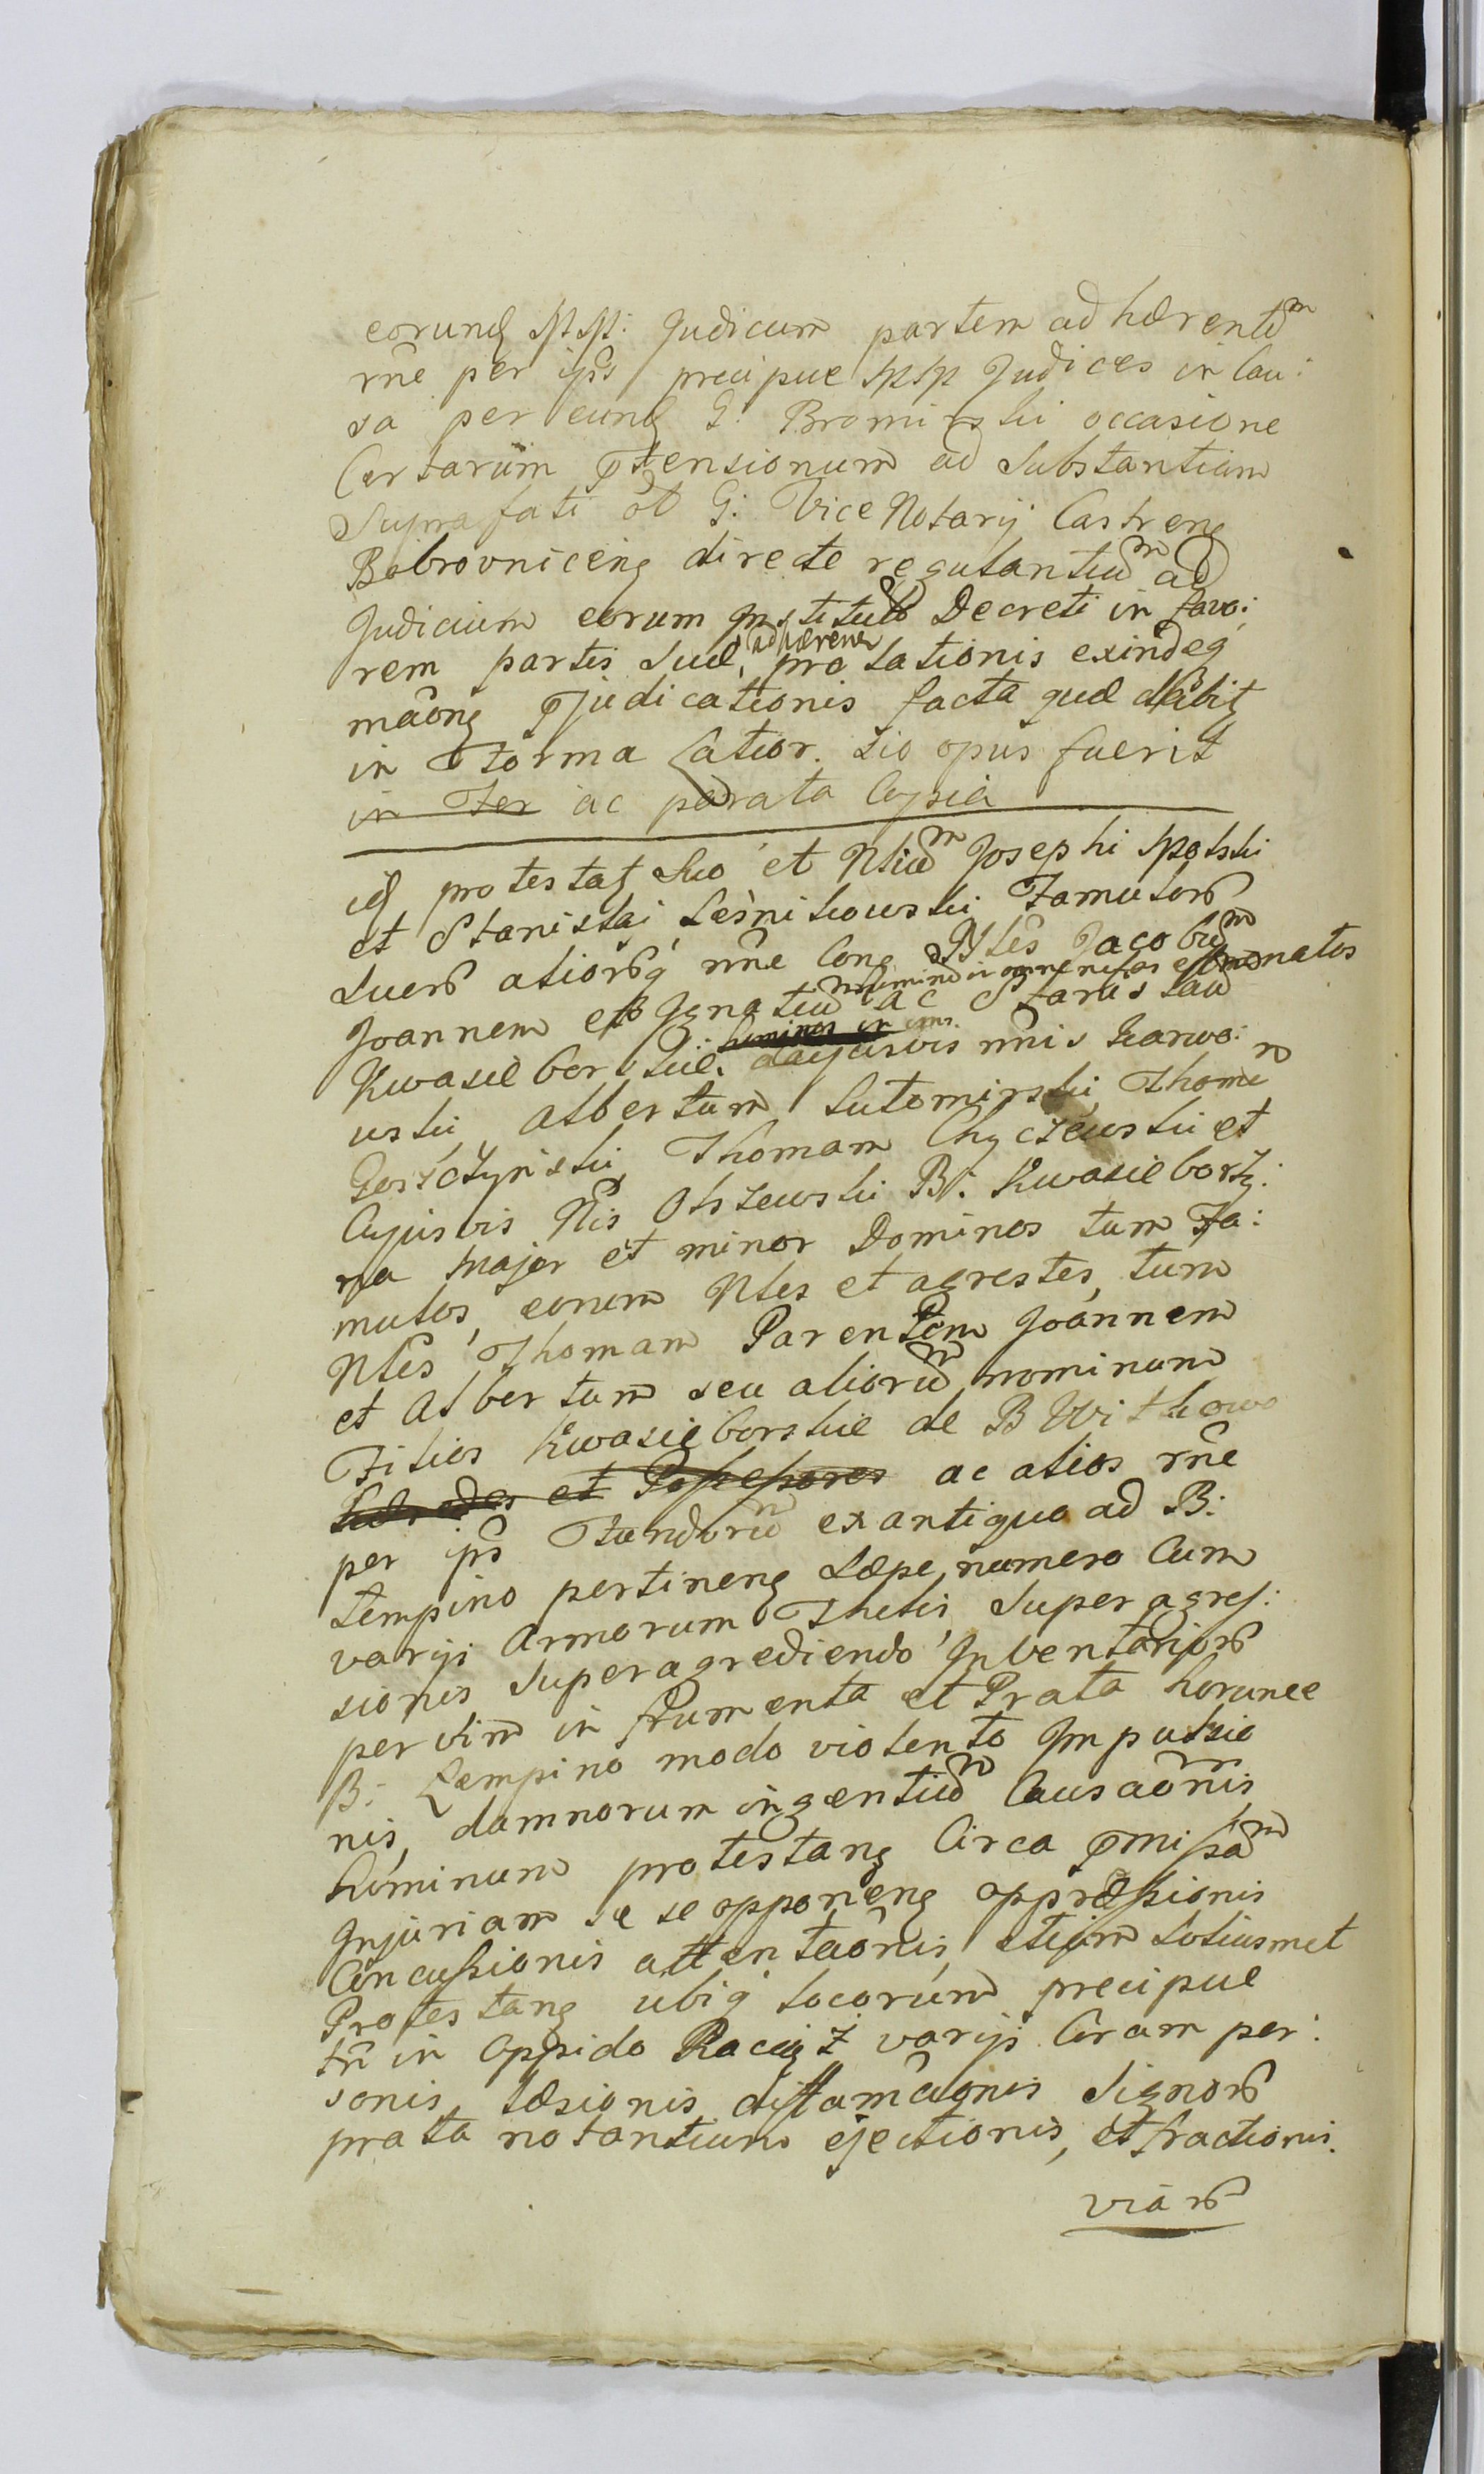 eorund Spsp: Judicum partem adhærentiũ
rñe per ip̃s precipue Spsp Judices in Cau:
sa per eund G: Bromirski occasione
Certarum p̃tensionum ad Substantiam
Suprafati ol G: Vice Notarij Castren
Bobrovnicen directe regulantiũ ad
Judicium eorum Decreti in favo:
rem partis Suæ, adhæren prolationis exindeq
maõn p̃judicationis facta quæ dabit
in Forma Latior. Sio opus fuerit
in Fer ac parata Copia
id protestat Suo et Ntiũ Josephi Spolski
et Stanislai Leśnikowski Famulor
Suor alior rñe Con Ntes Jacobũ
Joannem et Ignatiũ ac Stanislaũ
Kwasieborskie, cujusvis nñis Karwo:
wski, Albertum Lutomirski, Thomã
Goszczynski, Thomam Chyczewski et
Cujusvis Nis Olszewski B: Kwasieborz:
na major et minor Dominos tum Fa:
mulos, eorum Ntes et agrestes, tum
Ntes Thomam Parentem Joannem
et Albertum seu aliorũ nominum
Filios Kwasieborskie de B Witkowo
Hæredes et Possessores ac alios rñe
per ip̃s Fundorũ ex antiquo ad B:
Lempino pertinen Sæpe numero Cum
varijs Armorum Thelis, Superagres:
sionis Superagrediendo Inventarior
per vim in frumenta et Prata horunce
B: Lempino modo violento Impulsio
nis, damnorum ingentiũ Causaõnis,
hominum protestan Circa p̃missã
Injuriam se se opponen oppræssionis
Concussionis attentaõnis, etiam Sotiusmet
Protestan ubiq locorum precipue
tñ in Oppido Raciąz varijs Coram per:
sonis læsionis diffamaõnis Signor
prata notantium ejectionis, et fractionis.
viar